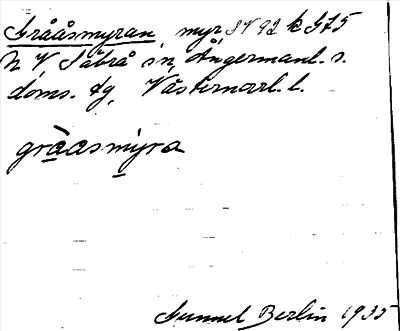 Grååsmyran, myr, SV 92 k 375
N V Säbrå sn, Ångermanl. s.
doms. tg, Västernorrl. l.
gråasmyra
Gunnel Berlin 1935